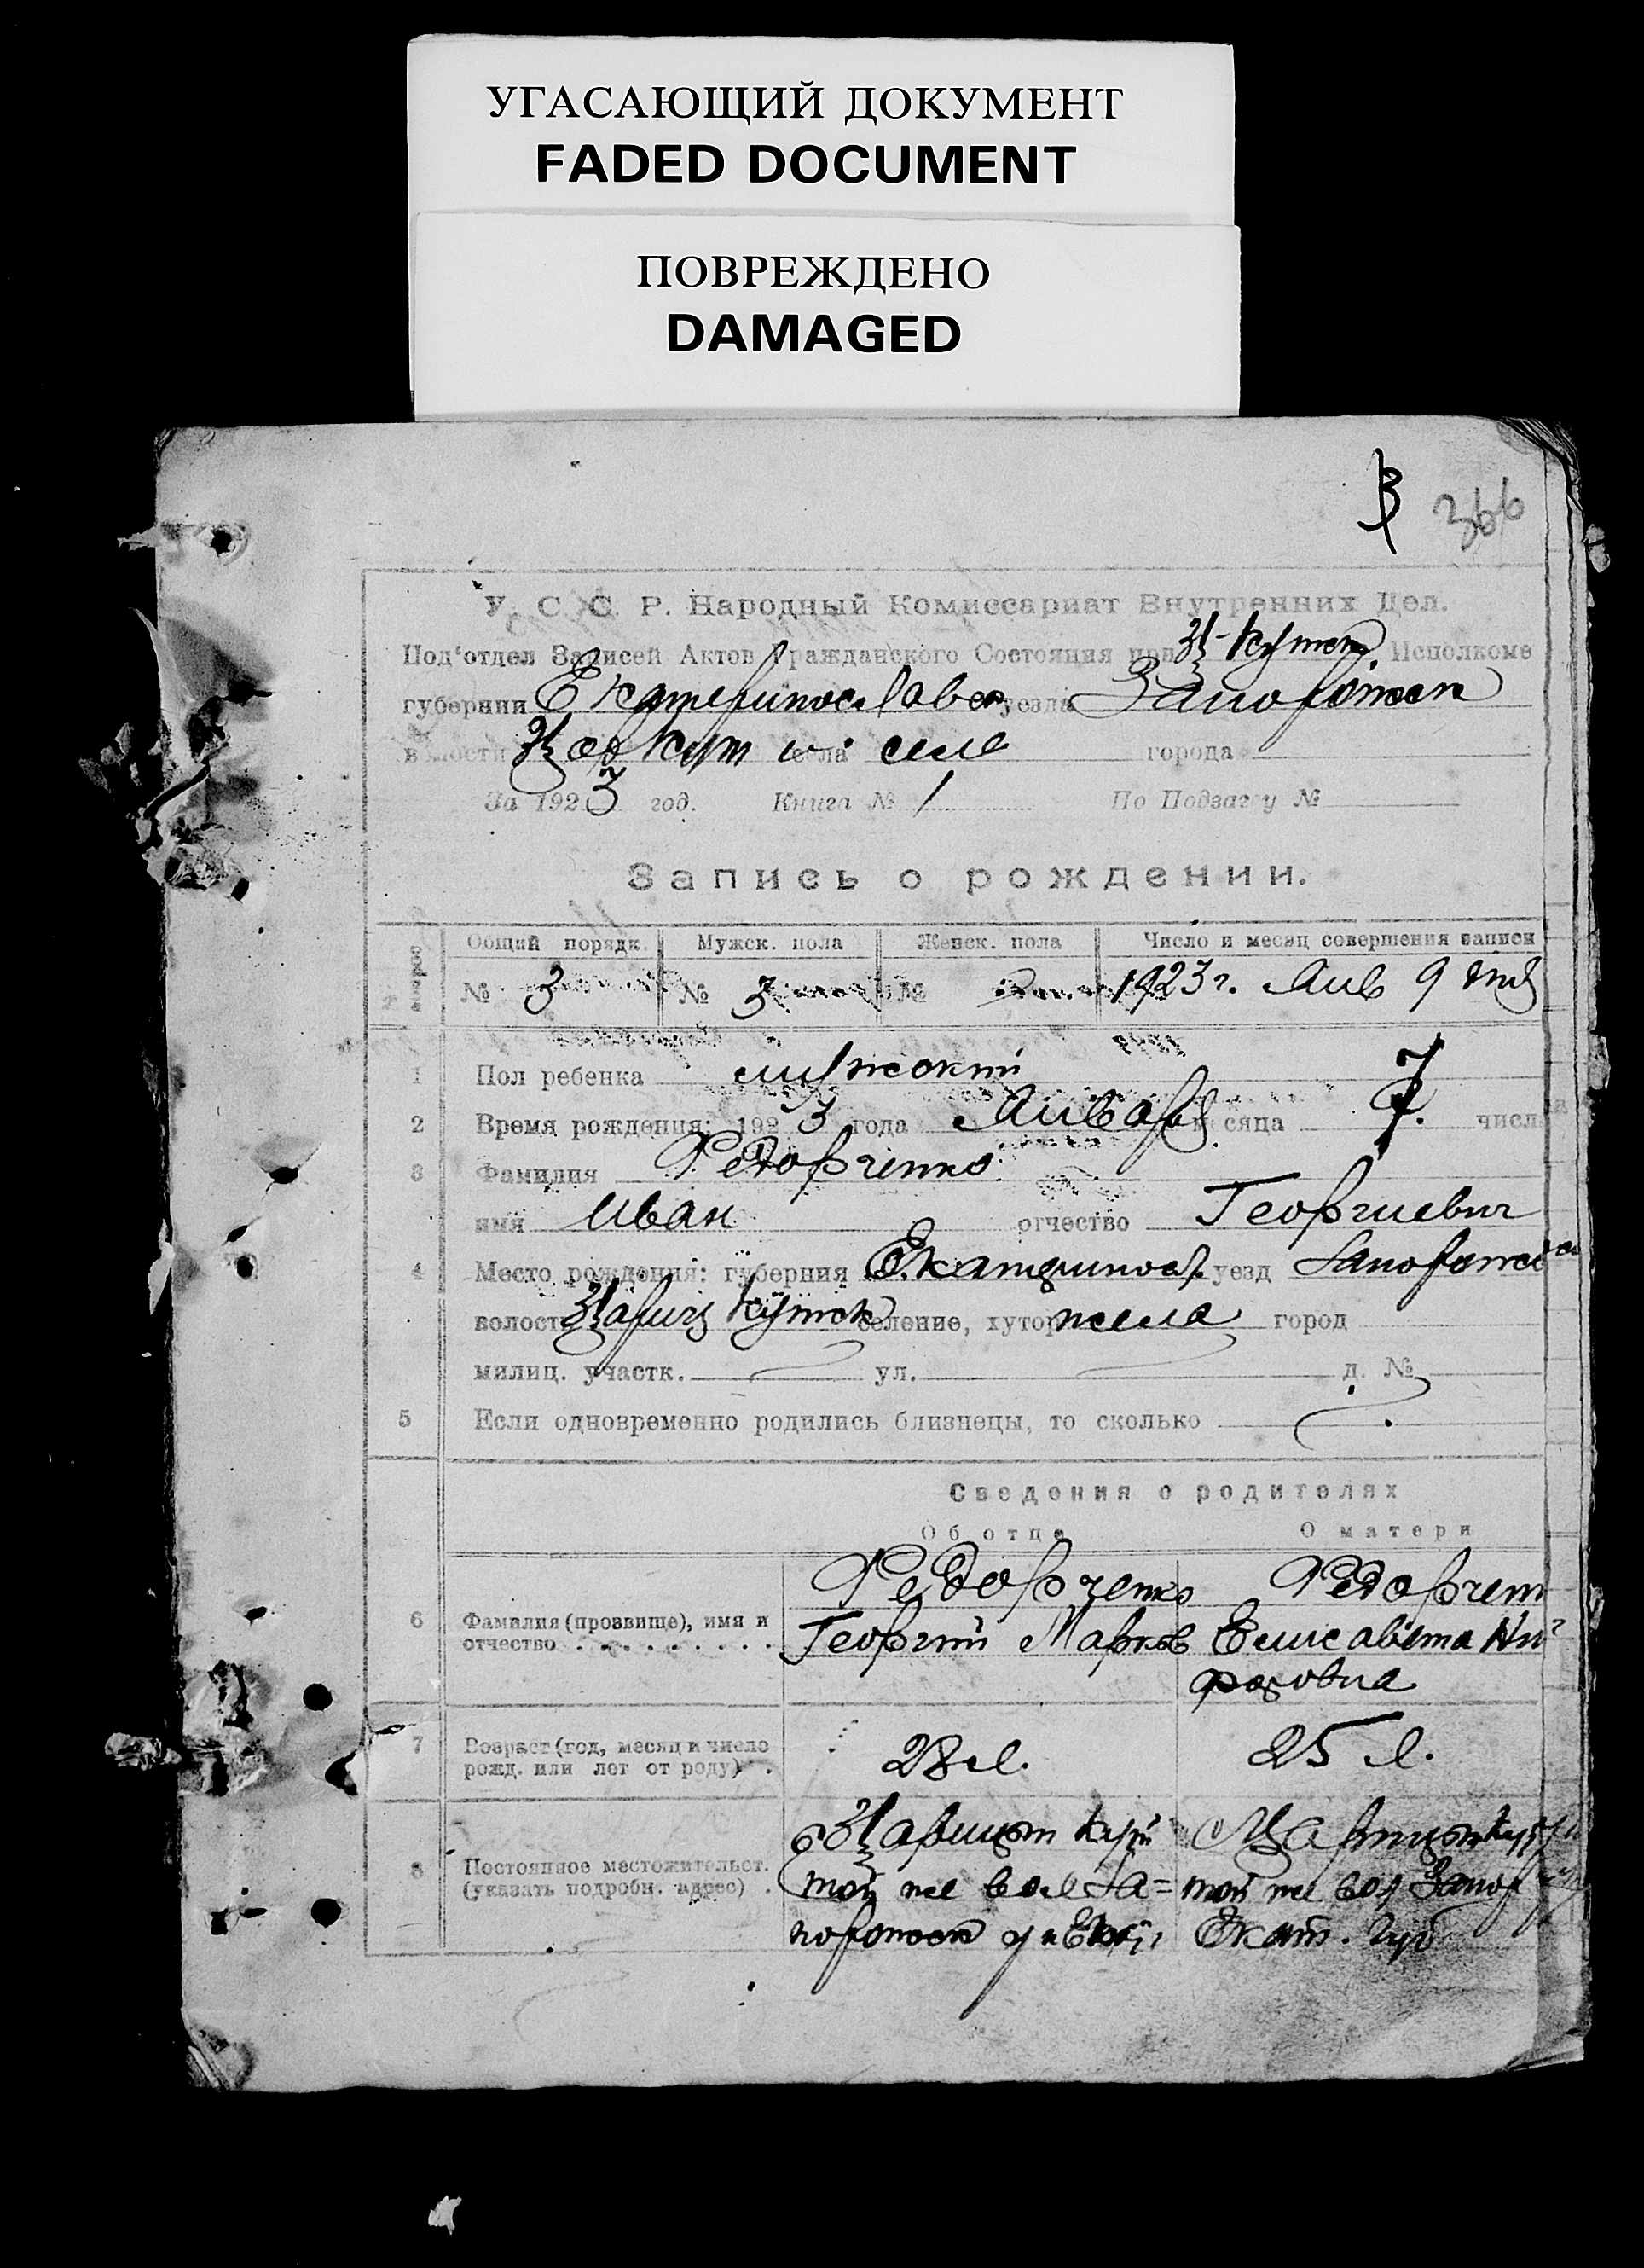 УГАСАЮЩИЙ ДОКУМЕНТ
FADED DOCUMENT
ПОВРЕЖДЕНО
DAMAGED
366
У. С. С. Р. Народный Комиссариат Внутренних Дел.
Под'отдел Записей Актов Гражданского Состояния при Ц-Кутск. Исполкоме
губернии Екатеринославск уезда Запорожск
волости села селе города
За 1923 год. Книга № 1 По Подзагсу №
Запись о рождении.
Общий порядк. Мужск. пола Женск. пола Число и месяц совершения записи
№ 3 № 3 № 1923 г. Янв 9 дня
1 Пол ребенка мужский
2 Время рождения: 1923 года Январь месяца 7. числа
3 Фамилия Федорченко
имя Иван отчество Георгиевич
4 Место рождения: губерния Екатеринос. уезд Запорожск
волость Цариц Кутск селение, хутор села город
милиц. участк. ул. д. №
5 Если одновременно родились близнецы, то сколько
Сведения о родителях
Об отце О матери
6 Фамилия (прозвище), имя и отчество Федорченко Федорчен
Георгий Марков Елисавета Ни
форовна
7 Возраст (год, месяц и число рожд. или лет от роду) 28 л. 25 л.
8 Постоянное местожительст. (указать подробн. адрес) с Царицын Кут Царицын Кут
той же вол За= той же вол Запор
порожск у Екат. губ